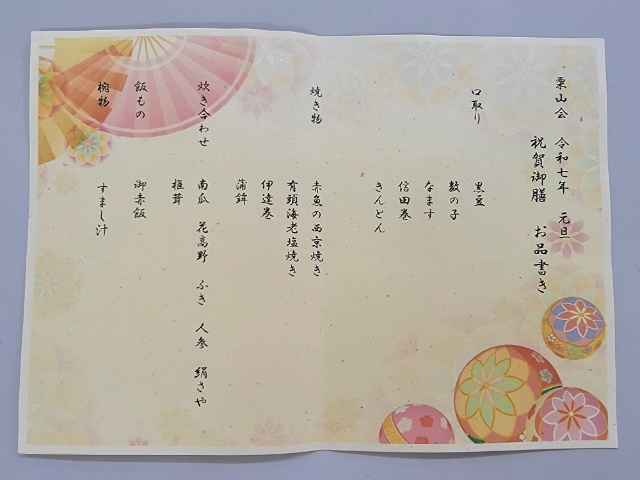 栗山会 令和七年 元旦
祝賀御膳 お品書き
口取り
黒豆
数の子
なます
信田巻
きんとん
焼き物
赤魚の西京焼き
有頭海老塩焼き
伊達巻
蒲鉾
炊き合わせ
南瓜 花高野 ふき 人参 絹さや
椎茸
飯もの
御赤飯
椀物
すまし汁